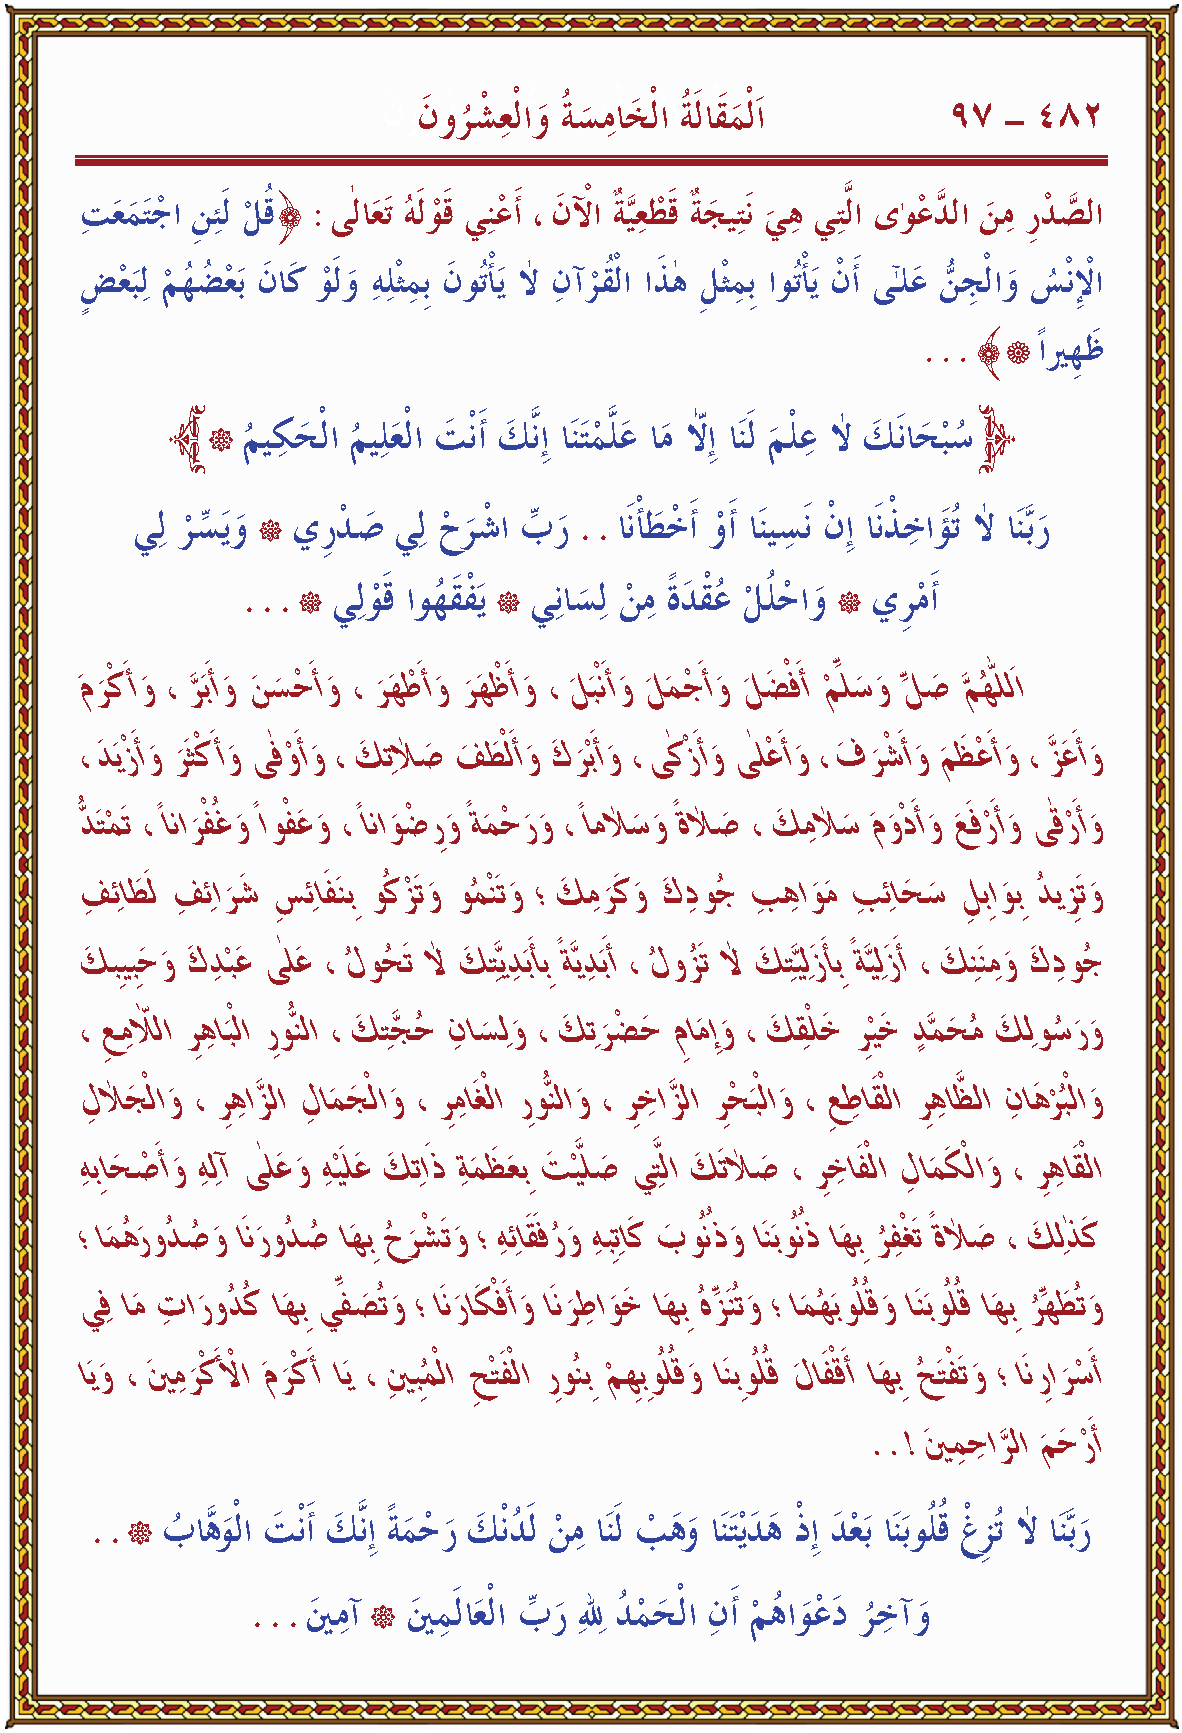 ٤٨٢ – ٩٧ اَلْمَقَالَةُ الْخَامِسَةُ وَالْعِشْرُونَ
الصَّدْرِ مِنَ الدَّعْوٰى الَّتِي هِيَ نَتِيجَةٌ قَطْعِيَّةٌ الْاٰنَ ، أَعْنِي قَوْلَهُ تَعَالٰى : ﴿قُلْ لَئِنِ اجْتَمَعَتِ
الْإِنْسُ وَالْجِنُّ عَلٰٓى أَنْ يَأْتُوا بِمِثْلِ هٰذَا الْقُرْآنِ لاٰ يَأْتُونَ بِمِثْلِهِ وَلَوْ كَانَ بَعْضُهُمْ لِبَعْضٍ
ظَهِيراً ۞﴾ . . .
﴿سُبْحَانَكَ لاٰ عِلْمَ لَنَا إِلاّٰ مَا عَلَّمْتَنَا إِنَّكَ أَنْتَ الْعَلِيمُ الْحَكِيمُ ۞﴾
رَبَّنَا لاٰ تُؤَاخِذْنَا إِنْ نَسِينَا أَوْ أَخْطَأْنَا . . رَبِّ اشْرَحْ لِي صَدْرِي ۞ وَيَسِّرْ لِي
أَمْرِي ۞ وَاحْلُلْ عُقْدَةً مِنْ لِسَانِي ۞ يَفْقَهُوا قَوْلِي ۞ . . .
اَللّٰهُمَّ صَلِّ وَسَلِّمْ أَفْضَلَ وَأَجْمَلَ وَأَنْبَلَ ، وَأَظْهَرَ وَأَطْهَرَ ، وَأَحْسَنَ وَأَبَرَّ ، وَأَكْرَمَ
وَأَعَزَّ ، وَأَعْظَمَ وَأَشْرَفَ ، وَأَعْلٰى وَأَزْكٰى ، وَأَبْرَكَ وَأَلْطَفَ صَلاٰتِكَ ، وَأَوْفٰى وَأَكْثَرَ وَأَزْيَدَ ،
وَأَرْقٰى وَأَرْفَعَ وَأَدْوَمَ سَلاٰمِكَ ، صَلاٰةً وَسَلاٰماً ، وَرَحْمَةً وَرِضْوَاناً ، وَعَفْواً وَغُفْرَاناً ، تَمْتَدُّ
وَتَزِيدُ بِوَابِلِ سَحَائِبِ مَوَاهِبِ جُودِكَ وَكَرَمِكَ ؛ وَتَنْمُو وَتَزْكُو بِنَفَائِسِ شَرَائِفِ لَطَائِفِ
جُودِكَ وَمِنَنِكَ ، أَزَلِيَّةً بِأَزَلِيَّتِكَ لاٰ تَزُولُ ، أَبَدِيَّةً بِأَبَدِيَّتِكَ لاٰ تَحُولُ ، عَلٰى عَبْدِكَ وَحَبِيبِكَ
وَرَسُولِكَ مُحَمَّدٍ خَيْرِ خَلْقِكَ ، وَإِمَامِ حَضْرَتِكَ ، وَلِسَانِ حُجَّتِكَ ، النُّورِ الْبَاهِرِ اللاّٰمِعِ ،
وَالْبُرْهَانِ الظَّاهِرِ الْقَاطِعِ ، وَالْبَحْرِ الزَّاخِرِ ، وَالنُّورِ الْغَامِرِ ، وَالْجَمَالِ الزَّاهِرِ ، وَالْجَلاٰلِ
الْقَاهِرِ ، وَالْكَمَالِ الْفَاخِرِ ، صَلاٰتَكَ الَّتِي صَلَّيْتَ بِعَظَمَةِ ذَاتِكَ عَلَيْهِ وَعَلٰى آلِهِ وَأَصْحَابِهِ
كَذٰلِكَ ، صَلاٰةً تَغْفِرُ بِهَا ذُنُوبَنَا وَذُنُوبَ كَاتِبِهِ وَرُفَقَائِهِ ؛ وَتَشْرَحُ بِهَا صُدُورَنَا وَصُدُورَهُمَا ؛
وَتُطَهِّرُ بِهَا قُلُوبَنَا وَقُلُوبَهُمَا ؛ وَتُنَزِّهُ بِهَا خَوَاطِرَنَا وَأَفْكَارَنَا ؛ وَتُصَفِّي بِهَا كُدُورَاتِ مَا فِي
أَسْرَارِنَا ؛ وَتَفْتَحُ بِهَا أَقْفَالَ قُلُوبِنَا وَقُلُوبِهِمْ بِنُورِ الْفَتْحِ الْمُبِينِ ، يَا أَكْرَمَ الْأَكْرَمِينَ ، وَيَا
أَرْحَمَ الرَّاحِمِينَ ! . .
رَبَّنَا لاٰ تُزِغْ قُلُوبَنَا بَعْدَ إِذْ هَدَيْتَنَا وَهَبْ لَنَا مِنْ لَدُنْكَ رَحْمَةً إِنَّكَ أَنْتَ الْوَهَّابُ ۞ . .
وَآخِرُ دَعْوَاهُمْ أَنِ الْحَمْدُ لِلّٰهِ رَبِّ الْعَالَمِينَ ۞ آمِينَ . . .